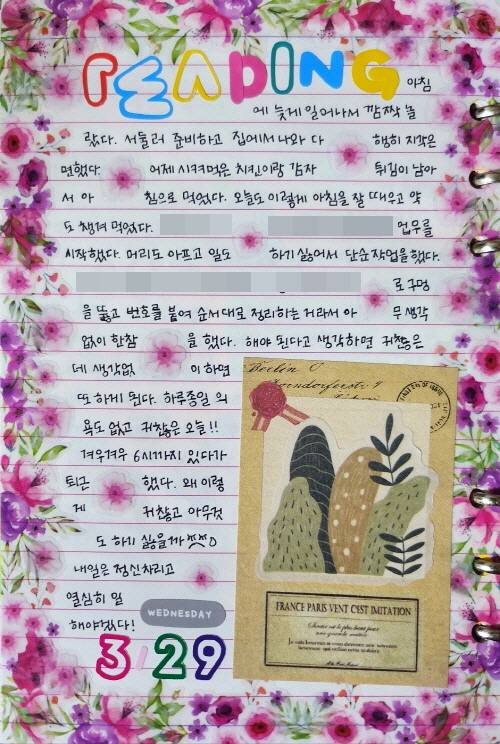 READING
아침
에 늦게 일어나서 깜짝 놀
랐다. 서둘러 준비하고 집에서 나와 다 행히 지각은
면했다. 어제 시켜먹은 치킨이랑 감자 튀김이 남아
서 아 침으로 먹었다. 오늘도 이렇게 아침을 잘 때우고 약
도 챙겨 먹었다. 업무를
시작했다. 머리도 아프고 일도 하기 싫어서 단순작업을 했다.
로 구멍
을 뚫고 번호를 붙여 순서대로 정리하는 거라서 아 무 생각
없이 한참 을 했다. 해야 된다고 생각하면 귀찮은
데 생각없 이 하면
또 하게 된다. 하루종일 의
욕도 없고 귀찮은 오늘!!
겨우겨우 6시까지 있다가
퇴근 했다. 왜 이렇
게 귀찮고 아무것
도 하기 싫을까
내일은 정신차리고
열심히 일
해야겠다!
WEDNESDAY
3/29
Berlin O
FRANCE PARIS VENT C'EST IMITATION